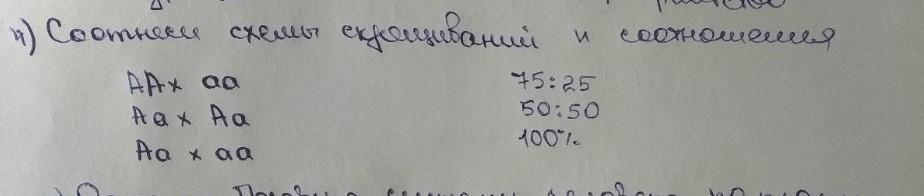 4) Соотнеси схемы скрещиваний и соотношения
AA x aa 75:25
Aa x Aa 50:50
Aa x aa 100%